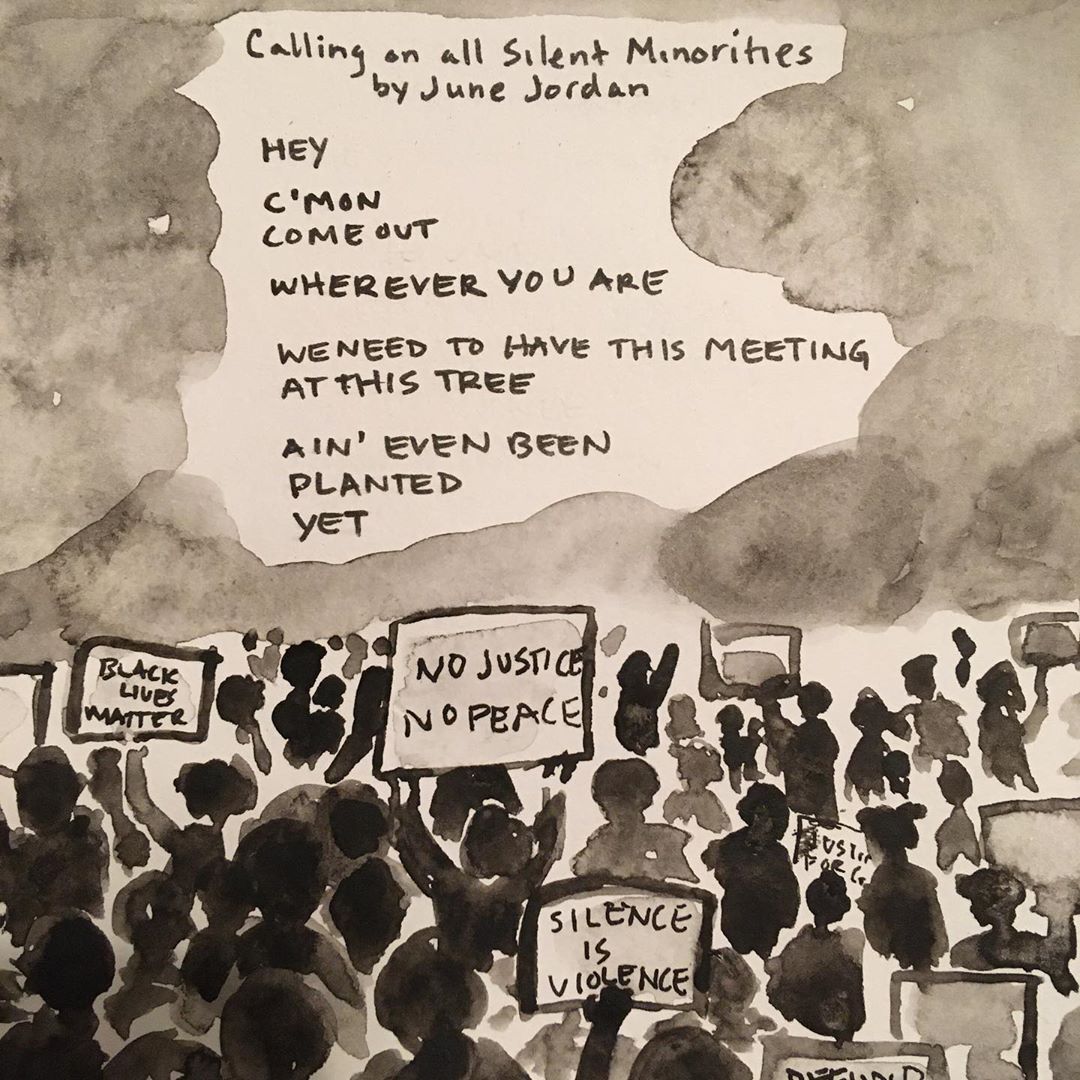 Calling on all Silent Minorities
by June Jordan
HEY
C'MON
COME OUT
WHEREVER YOU ARE
WE NEED TO HAVE THIS MEETING
AT THIS TREE
AIN' EVEN BEEN
PLANTED
YET
BLACK
LIVES
MATTER
NO JUSTICE
NO PEACE
FOR
SILENCE
IS
VIOLENCE